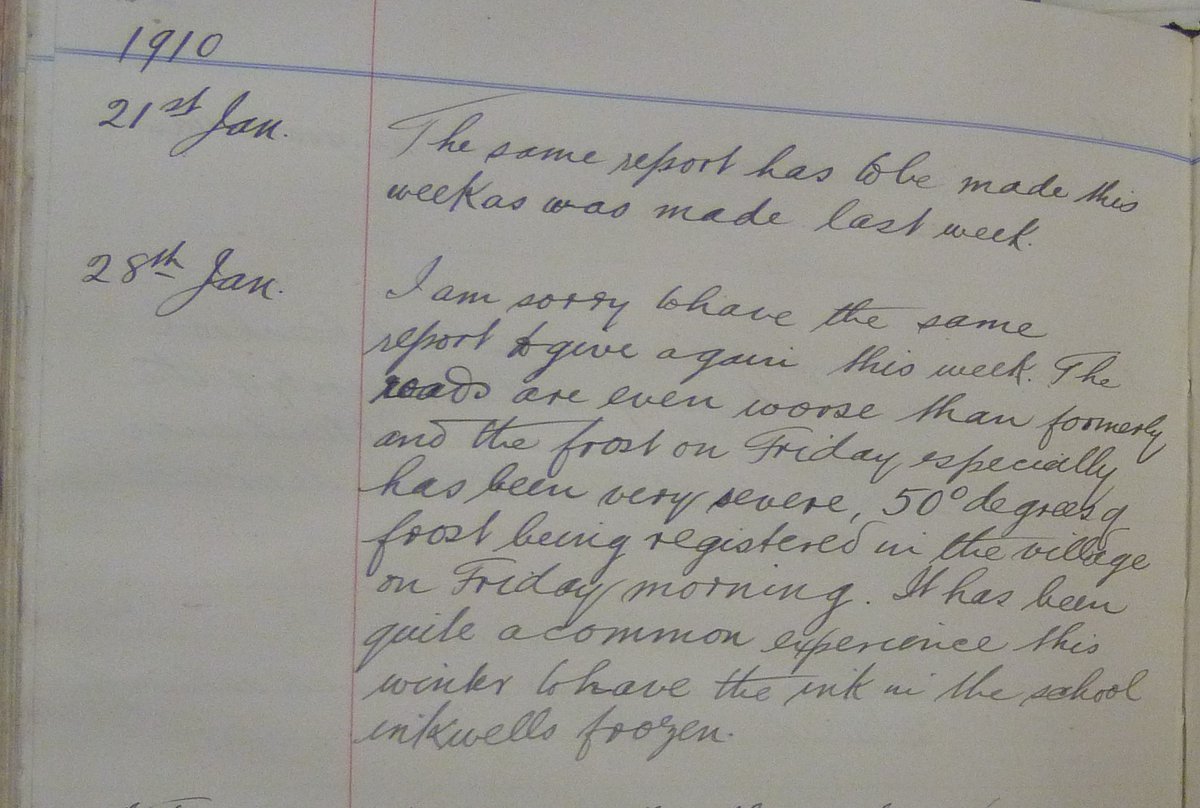 1910
21st Jan. The same report has to be made this
week as was made last week.
28th Jan. I am sorry to have the same
report to give again this week. The
roads are even worse than formerly
and the frost on Friday especially
has been very severe, 50° degrees of
frost being registered in the village
on Friday morning. It has been
quite a common experience this
winter to have the ink in the school
inkwells frozen.